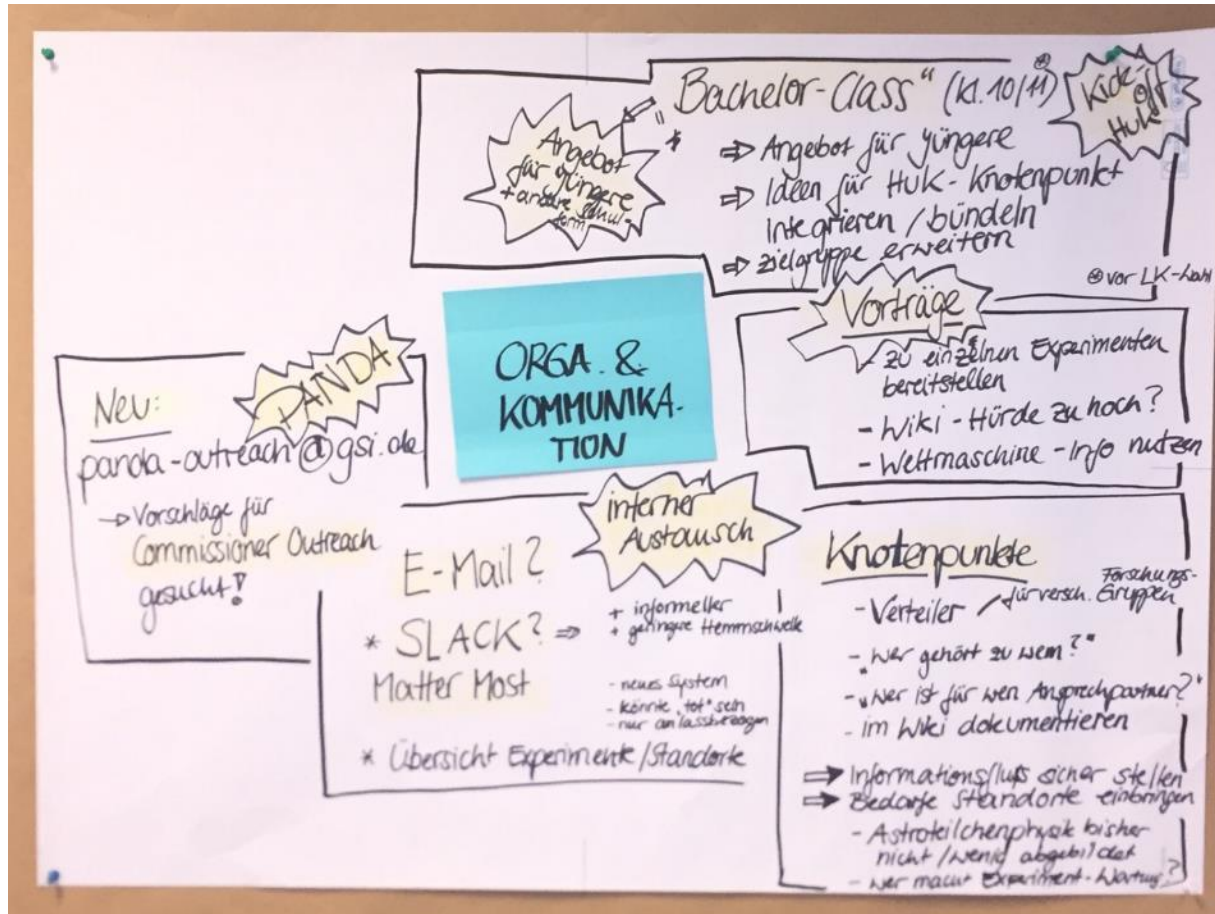 „Bachelor-Class“ (Kl. 10/11)⊛
Kick-
off
HuK
Angebot
für jüngere
+ andere Schul-
form
*
⇒ Angebot für jüngere
⇒ Ideen für HuK-Knotenpunkt
integrieren / bündeln
⇒ Zielgruppe erweitern
⊛ vor LK-Wahl
Vorträge
- zu einzelnen Experimenten
bereitstellen
- Wiki-Hürde zu hoch?
- Weltmaschine-Info nutzen
ORGA. &
KOMMUNIKA-
TION
PANDA
Neu:
panda-outreach@gsi.de
→ Vorschläge für
Commissioner Outreach
gesucht!
interner
Austausch
E-Mail?
* SLACK? ⇒
Matter Most
+ informeller
+ geringere Hemmschwelle
- neues System
- könnte „tot“ sein
- nur anlassbezogen
* Übersicht Experimente/Standorte
Knotenpunkte
- Verteiler / für versch. Forschungs-
Gruppen
- „Wer gehört zu wem?“
- „Wer ist für wen Ansprechpartner?“
- im Wiki dokumentieren
⇒ Informationsfluß sicher stellen
⇒ Bedarfe Standorte einbringen
- Astroteilchenphysik bisher
nicht/wenig abgebildet
- wer macht Experiment-Wartung?